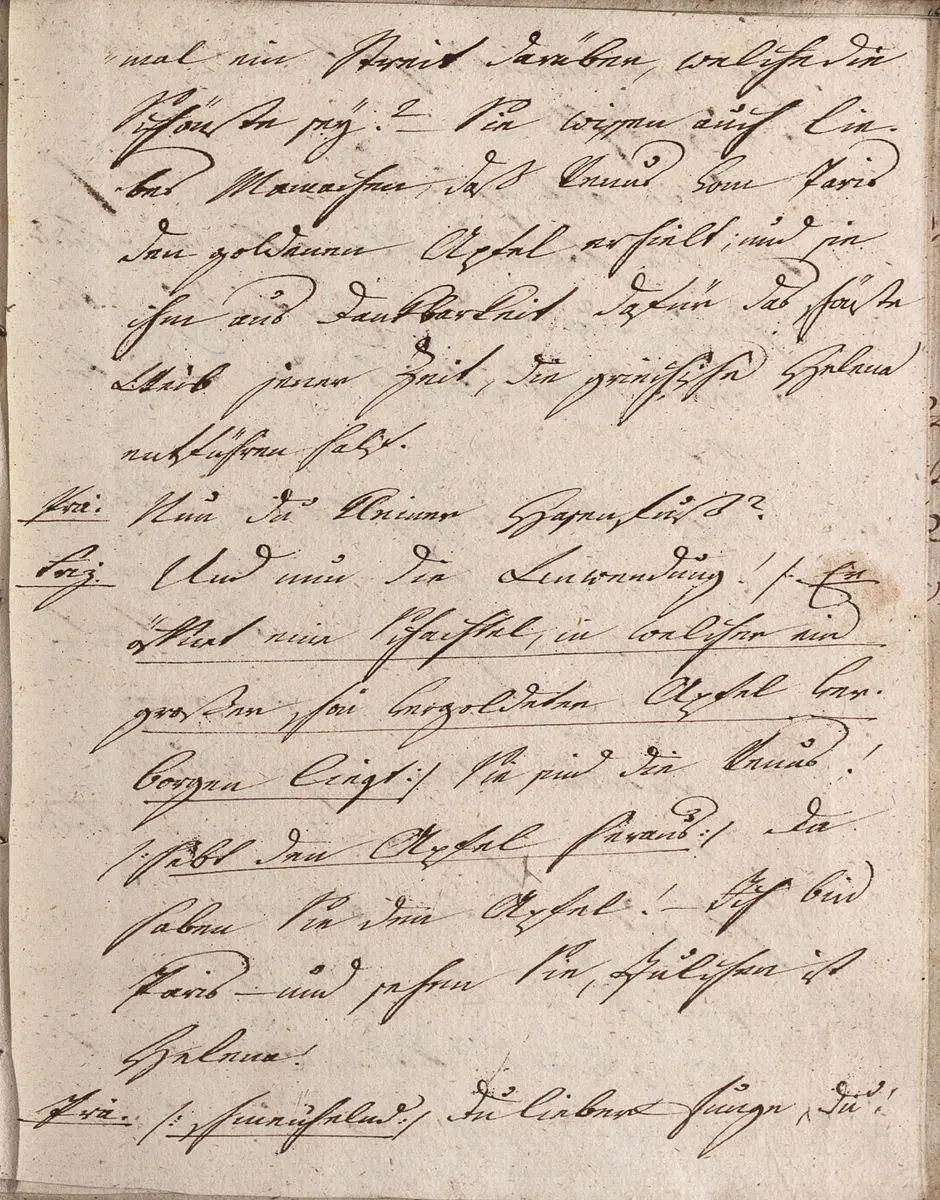 mal ein Streit darüber, welche die
Schönste sey? – Sie wissen auch lie-
bes Mamachen, daß Venus vom Paris
den goldenen Apfel erhielt; und sie
ihm aus Dankbarkeit dafür das schönste
Weib jener Zeit, die griechische Helena
entführen half.
Prä. Nun du kleiner Hasenfuß?
Friz. Und nun die Anwendung! /: Er
öffnet eine Schachtel, in welcher ein
großer, schön vergoldeter Apfel ver-
borgen liegt :/ Sie sind die Venus!
/: hebt den Apfel heraus :/ Da
haben Sie den Apfel! – Ich bin
Paris – und sehen Sie, Julchen ist
Helena!
Prä. /: schmeichelnd :/ Du lieber Junge, du!